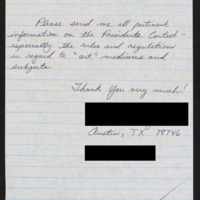 Please send me all pertinent
information on the Presidents Contest -
especially the rules and regulations
in regard to "art" mediums and
subjects.
Thank You very much!
Austin, TX 78746